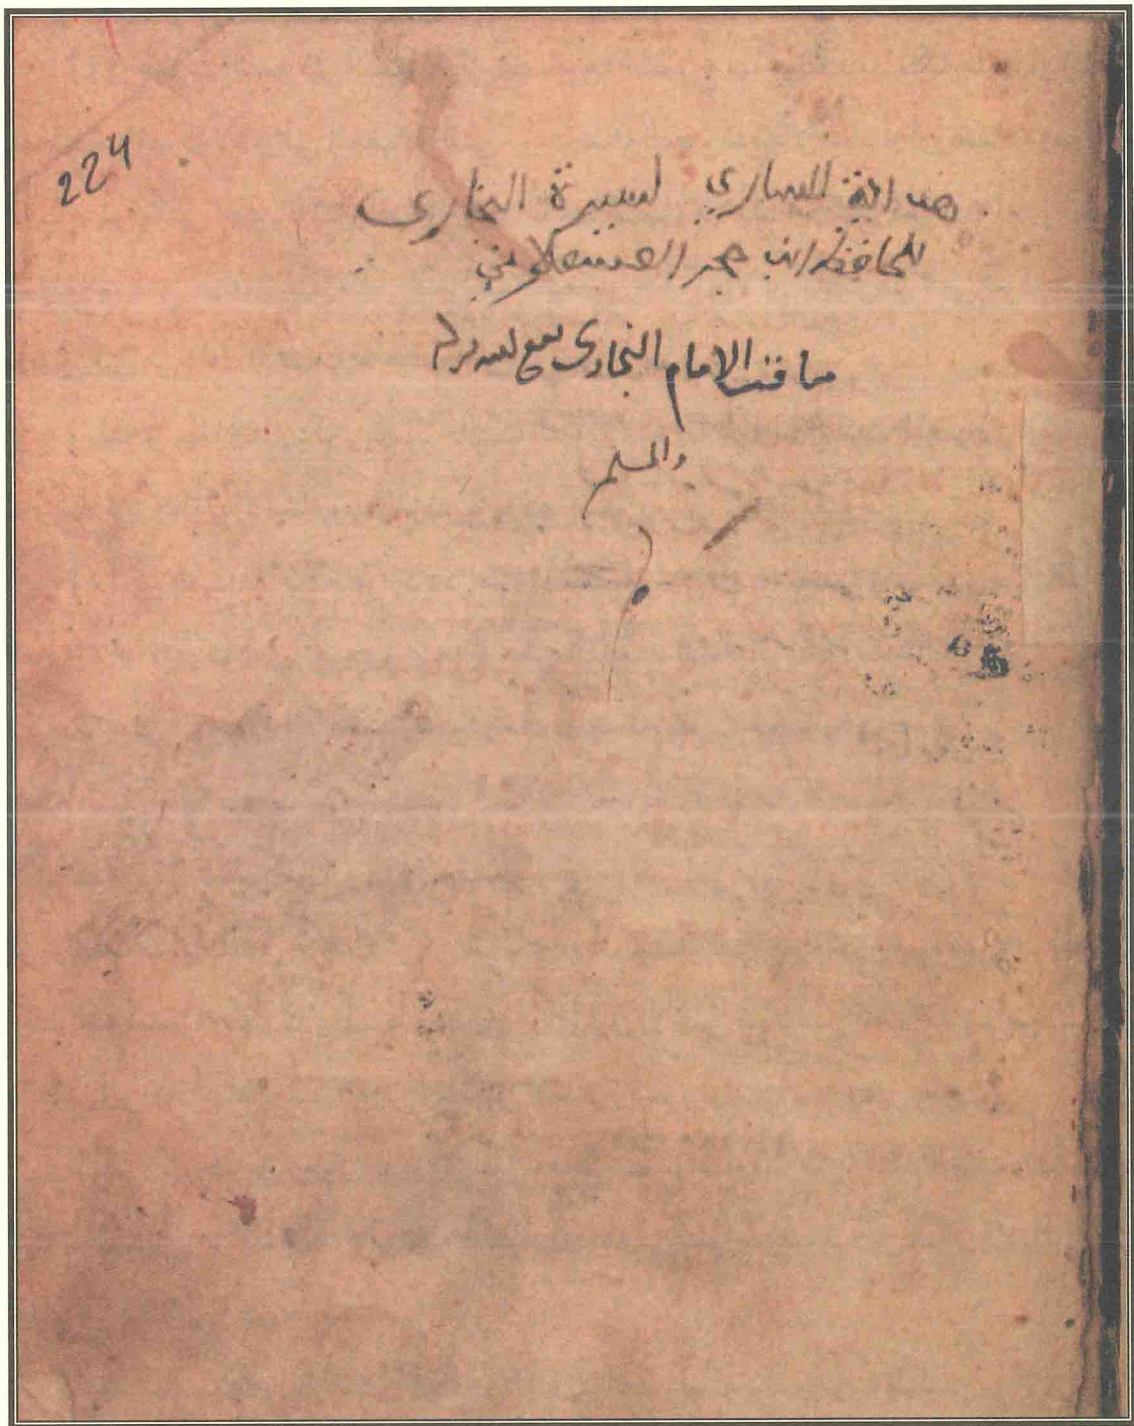 224
هداية الساري لسيرة البخاري
للحافظ ابن حجر العسقلاني
مناقب الامام البخاري نفع الله به
والمسلم